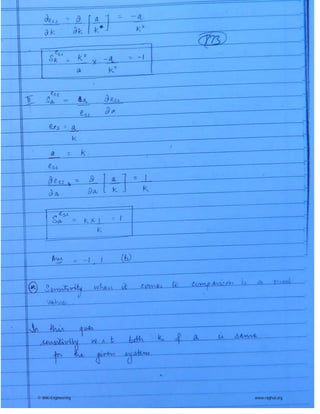 ∂ess/∂K = ∂/∂K [a/K] = -a/K²
773
S_K^ess = K²/a × -a/K² = -1
II S_a^ess = a/ess ∂ess/∂a
ess = a/K
a/ess = K
∂ess/∂a = ∂/∂a [a/K] = 1/K
S_a^ess = K×1/K = 1
Ans = -1, 1 (b)
Sensitivity when it comes to comparison is a mod
value.
In this ques
sensitivity w.r.t both K & a is same
for the given system